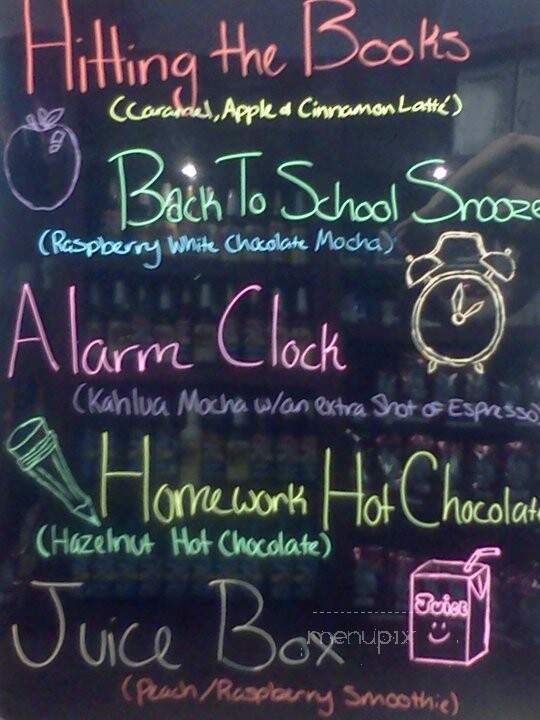 Hitting the Books
(Caramel, Apple & Cinnamon Latté)
Back To School Snooze
(Raspberry White Chocolate Mocha)
Alarm Clock
(Kahlua Mocha w/an extra Shot of Espresso)
Homework Hot Chocolat
(Hazelnut Hot Chocolate)
Juice
Juice Box
menupix
(Peach/Raspberry Smoothie)